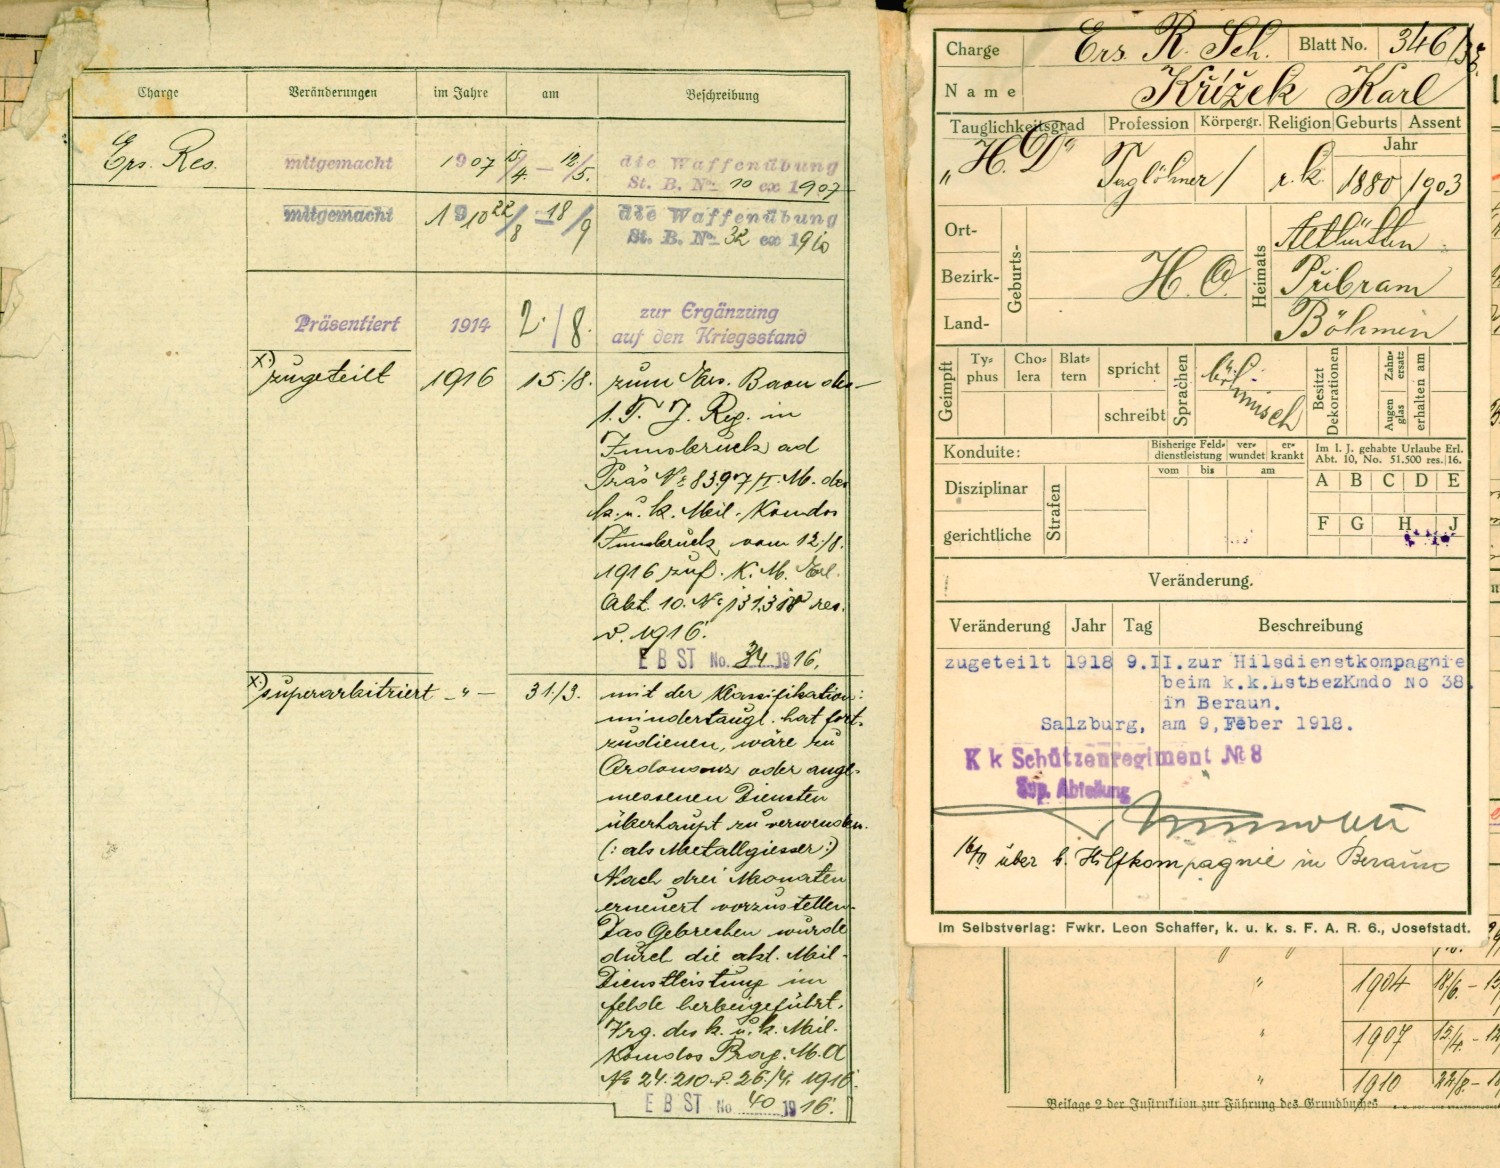 Charge Veränderungen im Jahre am Beschreibung
Ers. Res. mitgemacht 1907 15/4. – 12/5. die Waffenübung
St. B. No 10 ex 1907
mitgemacht 1910 22/8 – 18/9 die Waffenübung
St. B. No 32 ex 1910
Präsentiert 1914 2./8. zur Ergänzung
auf den Kriegsstand
x.) zugeteilt 1916 15./8. zum Ers. Baon des
1. T. J. Reg. in
Innsbruck ad
Präs No 8397/I. M. des
k. u. k. Mil. Komdos
Innsbruck vom 12./8.
1916 zuf. K. M. Erl.
Abt. 10. No 131.318 res.
v. 1916.
E B ST No. 34 1916.
x.) superarbitriert -"- 31./3. mit der Klassifikation:
mindertaugl. hat fort-
zudienen, wäre zu
Ordonanz oder ange-
messenen Diensten
überhaupt zu verwenden.
(: als Metallgiesser :)
Nach drei Monaten
erneuert vorzustellen.
Das Gebrechen wurde
durch die akt. Mil-
Dienstleistung im
felde herbeigeführt.
Vrg. des k. u. k. Mil.
Komdos Prag. M. A
No 24.210 v. 26./4. 1916.
E B ST No 40 1916.
Charge Ers. R. Sch. Blatt No. 346/33.
Name Křížek Karl
Tauglichkeitsgrad Profession Körpergr. Religion Geburts Assent
Jahr
„H. D“ Taglöhner / r. k. 1880 1903
Ort- Althütten
Bezirk- Geburts- H. O. Heimats Přibram
Land- Böhmen
Geimpft Ty-phus Cho-lera Blat-tern spricht Sprachen böhmisch Besitzt Dekorationen Zahn-ersatz Augen glas erhalten am
schreibt
Konduite: Bisherige Feld-dienstleistung ver-wundet er-krankt Im I. J. gehabte Urlaube Erl.
Abt. 10, No. 51.500 res. 16.
vom bis am
Disziplinar A B C D E
Strafen
gerichtliche F G H J
Veränderung.
Veränderung Jahr Tag Beschreibung
zugeteilt 1918 9.II. zur Hilsdienstkompagnie
beim k.k.LstBezKmdo No 38.
in Beraun.
Salzburg, am 9,Feber 1918.
K k Schützenregiment № 8
Sup. Abteilung
16/II über b. Hilfkompagnie in Beraun
Im Selbstverlag: Fwkr. Leon Schaffer, k. u. k. s. F. A. R. 6., Josefstadt.
" 1904 18/6. –
" 1907 15/4. –
" 1910 22/8. –
Beilage 2 der Instruktion zur Führung des Grundbuches